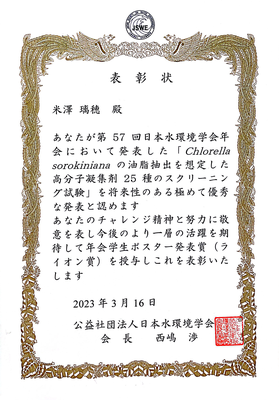 JSWE
表彰状
米澤 瑞穂 殿
あなたが第 57 回日本水環境学会年
会において発表した「Chlorella
sorokiniana の油脂抽出を想定した
高分子凝集剤 25 種のスクリーニン
グ試験」を将来性のある極めて優秀
な発表と認めます
あなたのチャレンジ精神と努力に敬
意を表し今後のより一層の活躍を期
待して年会学生ポスター発表賞（ラ
イオン賞）を授与しこれを表彰いた
します
2023 年 3 月 16 日
公益社団法人日本水環境学会
会 長 西嶋 渉